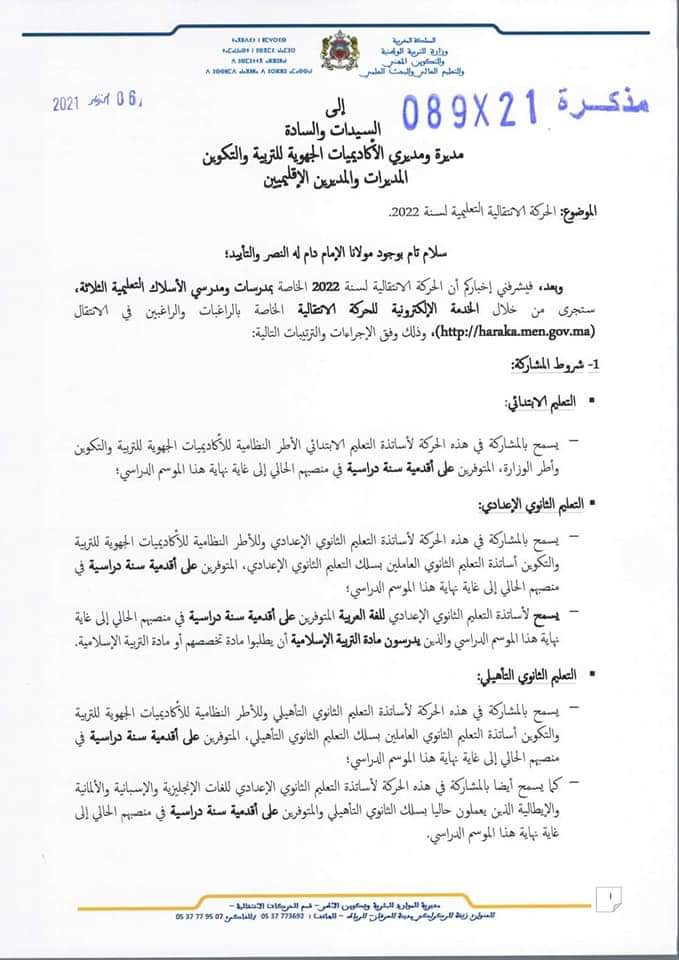 المملكة المغربية
وزارة التربية الوطنية
والتكوين المهني
والتعليم العالي والبحث العلمي
مذكرة 089X21
06 أكتوبر 2021
إلى
السيدات والسادة
مديرة ومديري الأكاديميات الجهوية للتربية والتكوين
المديرات والمديرين الإقليميين
الموضوع: الحركة الانتقالية التعليمية لسنة 2022.
سلام تام بوجود مولانا الإمام دام له النصر والتأييد؛
وبعد، فيشرفني إخباركم أن الحركة الانتقالية لسنة 2022 الخاصة بمدرسات ومدرسي الأسلاك التعليمية الثلاثة،
ستجرى من خلال الخدمة الإلكترونية للحركة الانتقالية الخاصة بالراغبات والراغبين في الانتقال
(http://haraka.men.gov.ma)، وذلك وفق الإجراءات والترتيبات التالية:
1- شروط المشاركة:
▪ التعليم الابتدائي:
– يسمح بالمشاركة في هذه الحركة لأساتذة التعليم الابتدائي الأطر النظامية للأكاديميات الجهوية للتربية والتكوين
وأطر الوزارة، المتوفرين على أقدمية سنة دراسية في منصبهم الحالي إلى غاية نهاية هذا الموسم الدراسي؛
▪ التعليم الثانوي الإعدادي:
– يسمح بالمشاركة في هذه الحركة لأساتذة التعليم الثانوي الإعدادي وللأطر النظامية للأكاديميات الجهوية للتربية
والتكوين أساتذة التعليم الثانوي العاملين بسلك التعليم الثانوي الإعدادي، المتوفرين على أقدمية سنة دراسية في
منصبهم الحالي إلى غاية نهاية هذا الموسم الدراسي؛
– يسمح لأساتذة التعليم الثانوي الإعدادي للغة العربية المتوفرين على أقدمية سنة دراسية في منصبهم الحالي إلى غاية
نهاية هذا الموسم الدراسي والذين يدرسون مادة التربية الإسلامية أن يطلبوا مادة تخصصهم أو مادة التربية الإسلامية.
▪ التعليم الثانوي التأهيلي:
– يسمح بالمشاركة في هذه الحركة لأساتذة التعليم الثانوي التأهيلي وللأطر النظامية للأكاديميات الجهوية للتربية
والتكوين أساتذة التعليم الثانوي العاملين بسلك التعليم الثانوي التأهيلي، المتوفرين على أقدمية سنة دراسية في
منصبهم الحالي إلى غاية نهاية هذا الموسم الدراسي؛
– كما يسمح أيضا بالمشاركة في هذه الحركة لأساتذة التعليم الثانوي الإعدادي للغات الإنجليزية والإسبانية والألمانية
والإيطالية الذين يعملون حاليا بسلك الثانوي التأهيلي والمتوفرين على أقدمية سنة دراسية في منصبهم الحالي إلى
غاية نهاية هذا الموسم الدراسي.
1
مديرية الموارد البشرية وتكوين الأطر– قسم الحركات الانتقالية –
– الهاتف: 05 37 773692 والفاكس: 05 37 77 95 07